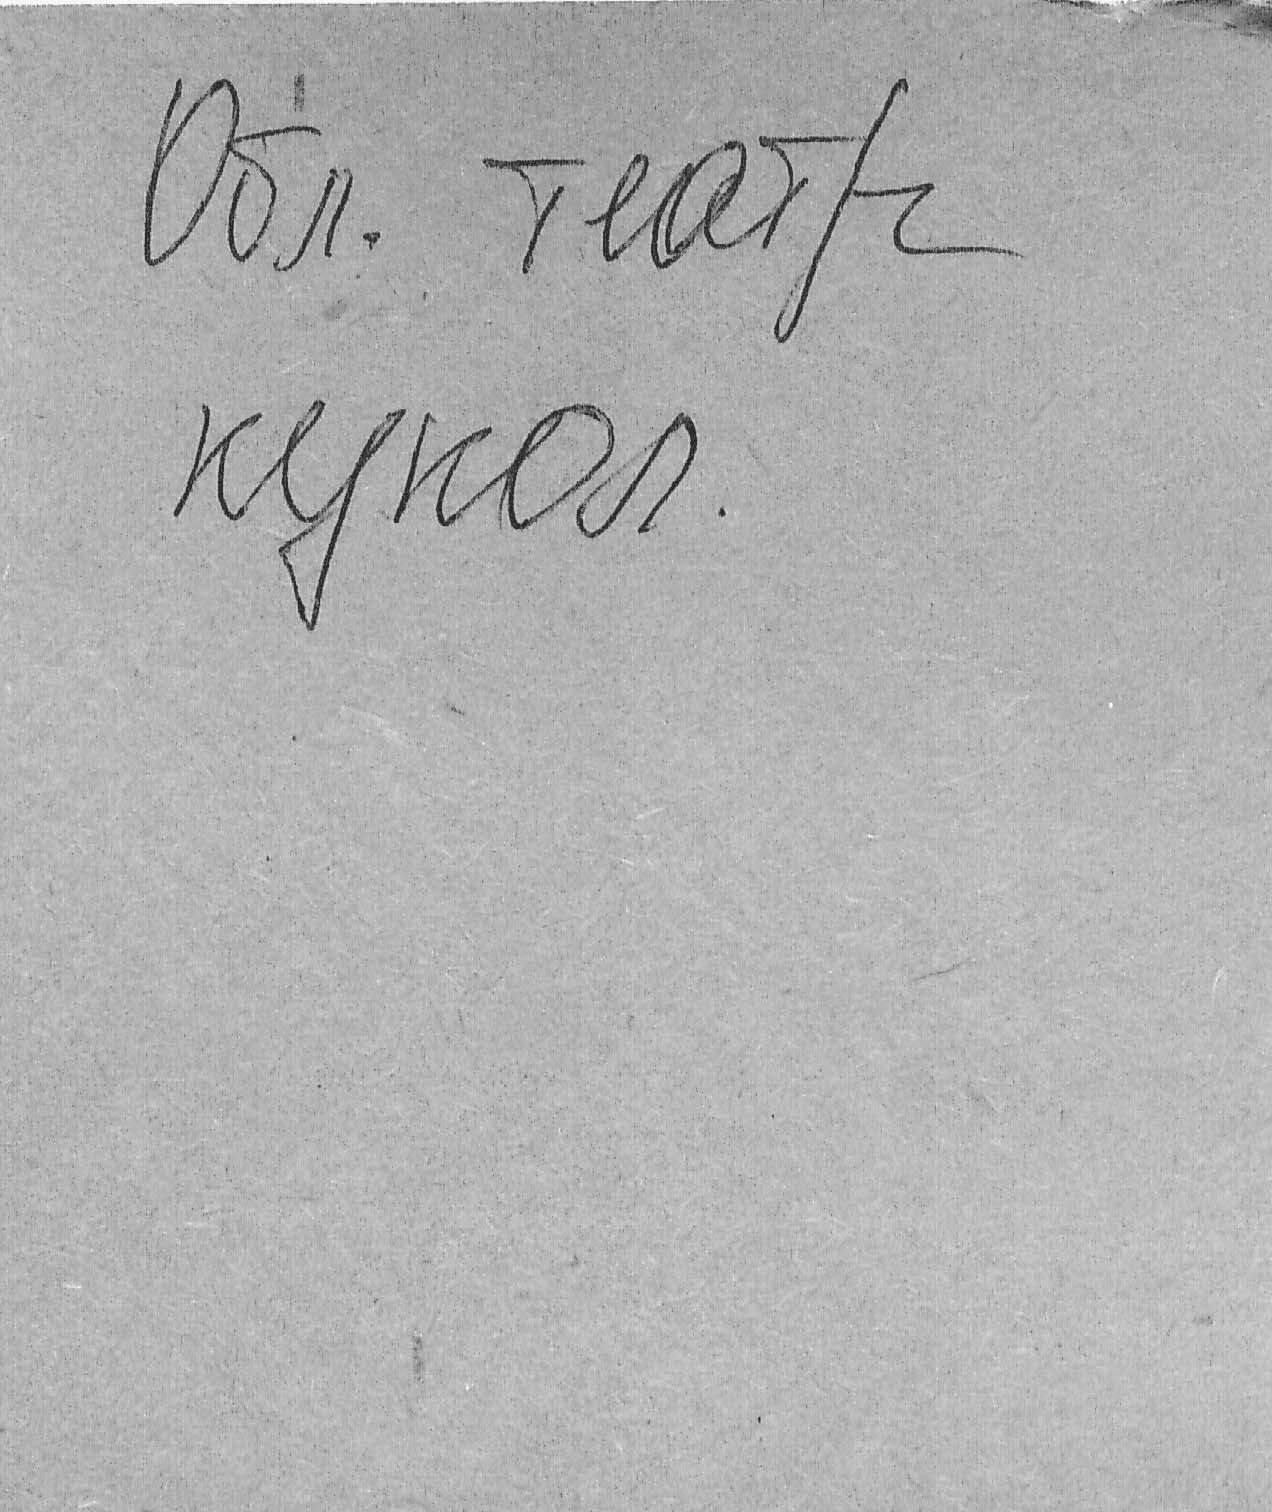 Обл. театр
кукол.